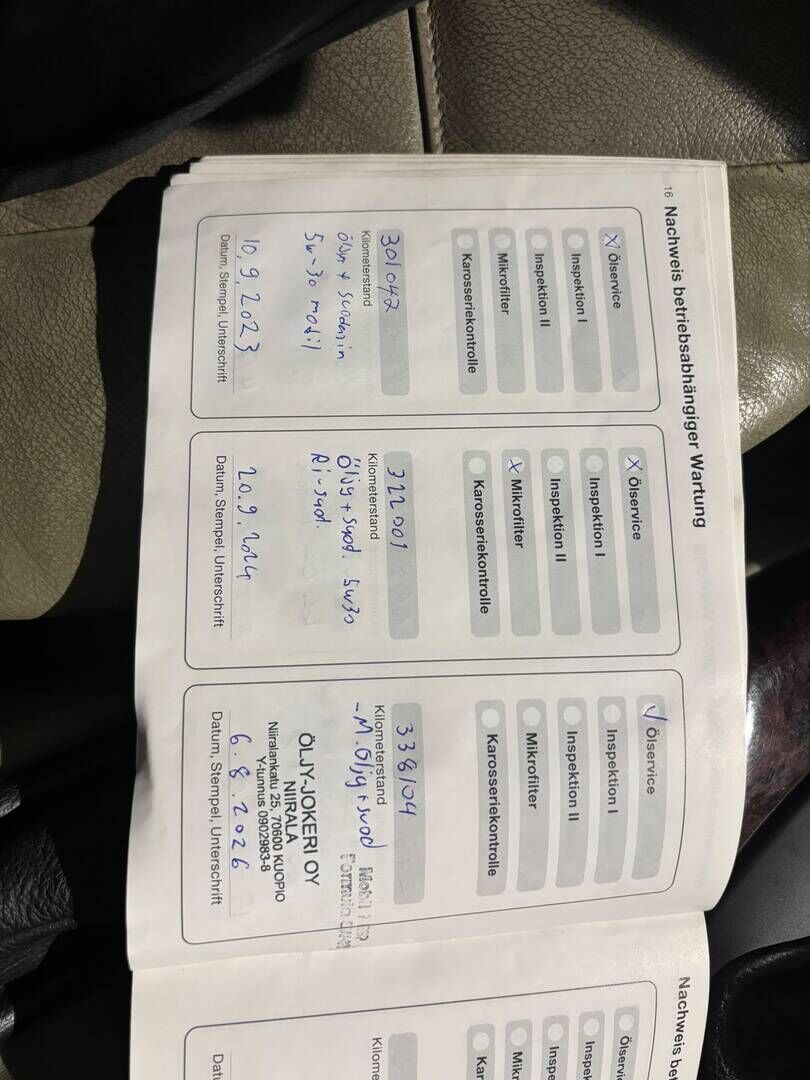 16 Nachweis betriebsabhängiger Wartung
X Ölservice
Inspektion I
Inspektion II
Mikrofilter
Karosseriekontrolle
301042
Kilometerstand
öljyn + suodatin
5w-30 mobil
10.9.2023
Datum, Stempel, Unterschrift
X Ölservice
Inspektion I
Inspektion II
X Mikrofilter
Karosseriekontrolle
322001
Kilometerstand
Öljy + suod. 5w30
Ri-suod.
20.9.2024
Datum, Stempel, Unterschrift
✓ Ölservice
Inspektion I
Inspektion II
Mikrofilter
Karosseriekontrolle
338104
Kilometerstand
-M.öljy + suod
Mobil 1 ESP
Formula 5W30
ÖLJY-JOKERI OY
NIIRALA
Niiralankatu 25, 70600 KUOPIO
Y-tunnus 0902983-8
6.8.2026
Datum, Stempel, Unterschrift
Nachweis be
Ölservic
Inspek
Inspe
Mikr
Kar
Kilome
Datu